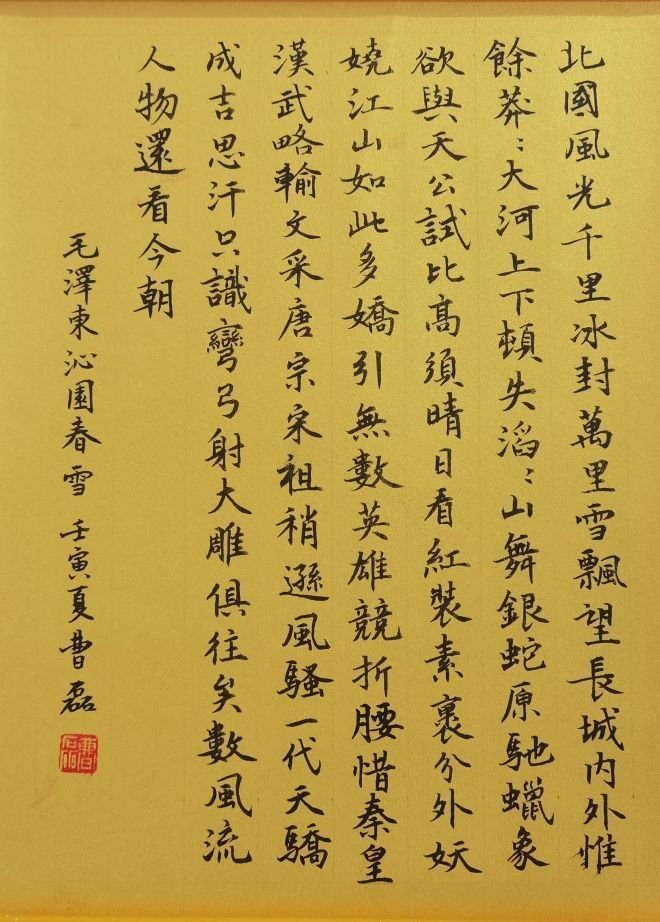 北國風光千里冰封萬里雪飄望長城内外惟
餘莽〻大河上下頓失滔〻山舞銀蛇原馳蠟象
欲與天公試比高須晴日看紅裝素裹分外妖
嬈江山如此多嬌引無數英雄競折腰惜秦皇
漢武略輸文采唐宗宋祖稍遜風騷一代天驕
成吉思汗只識彎弓射大雕俱往矣數風流
人物還看今朝
毛澤東沁園春雪 壬寅夏曹磊